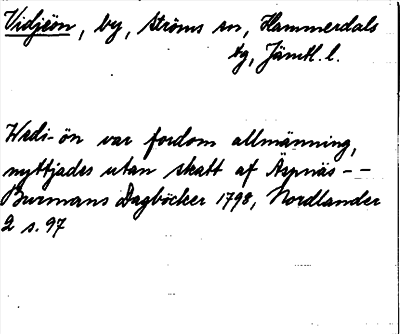 Vidjeön, by, Ströms sn, Hammerdals
tg, Jämtl. l.
Wedi-ön var fordom allmänning,
nyttjades utan skatt af Äspnäs - -
Burmans Dagböcker 1798, Nordlander
2 s. 97